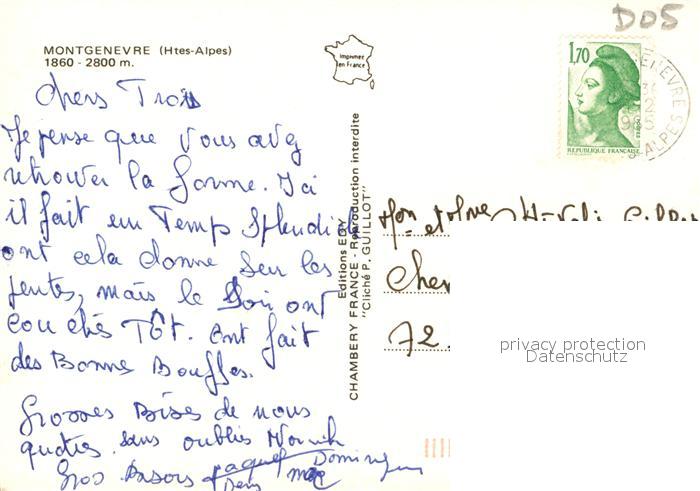 D05
MONTGENEVRE (Htes-Alpes)
1860 - 2800 m.
Imprimé
en France
1,70
REPUBLIQUE FRANÇAISE
chers Trois
Je pense que vous avez
retrouver la forme. Ici
il fait un Temps Splendide
ont cela donne sur les
pentes, mais le Soir ont
couchés Tôt. ont fait
des Bonne Bouffes.
Grosses Bises de nous
quatres. sans oublis
Gros Bisous
Editions EDY
CHAMBERY FRANCE - Reproduction interdite
"Cliché P. GUILLOT"
Mon et Mme
Che
72
privacy protection
Datenschutz